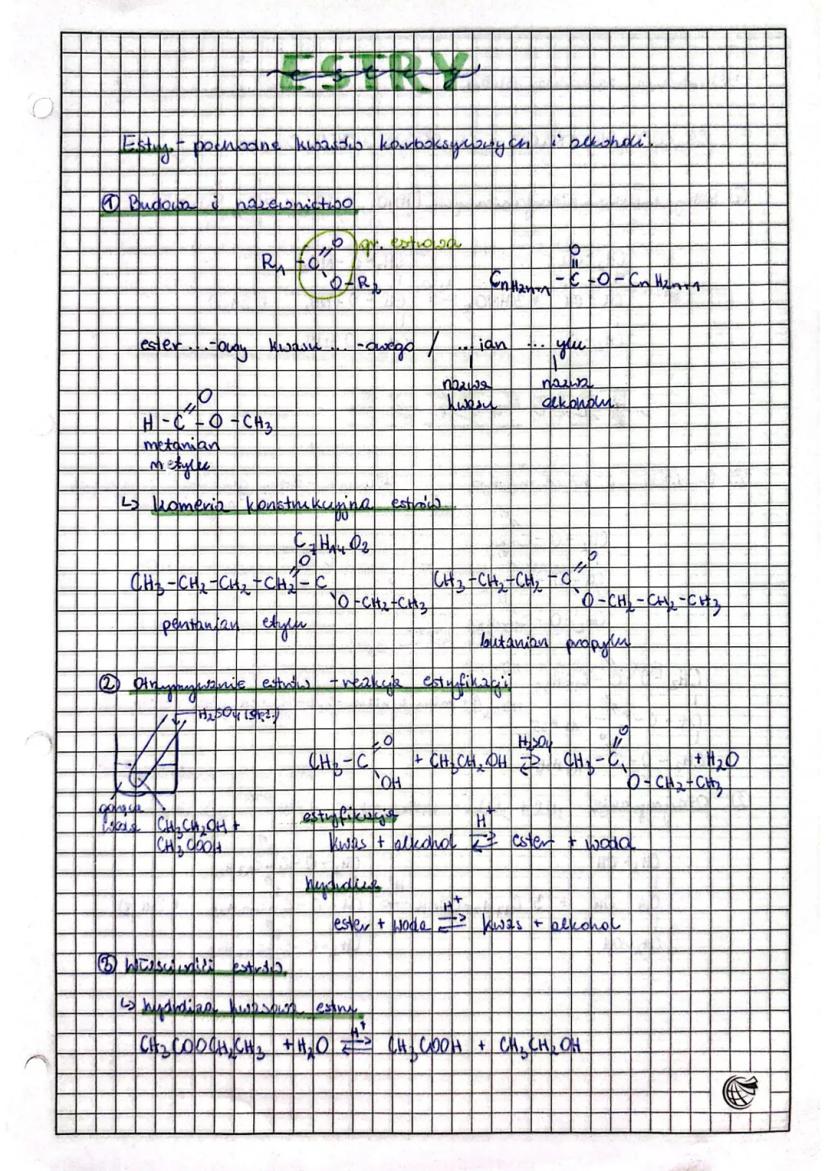 ESTRY
estry
Estry - pochodne kwasów karboksylowych i alkoholi.
① Budowa i nazewnictwo
gr. estrowa
R₁ - C =O O-R₂
O
CnH2n+1 - C - O - CnH2n+1
ester ...-owy kwasu ... -owego / ...ian ... ylu
nazwa kwasu nazwa alkoholu
O
H - C - O - CH₃
metanian
metylu
↳ Izomeria konstrukcyjna estrów
C₇H₁₄O₂
CH₃-CH₂-CH₂-CH₂-C =O O-CH₂-CH₃
CH₃-CH₂-CH₂-C =O O-CH₂-CH₂-CH₃
pentanian etylu
butanian propylu
② Otrzymywanie estrów - reakcja estryfikacji
H₂SO₄ (stęż.)
CH₃-C =O OH + CH₃CH₂OH H₂SO₄ ⇄ CH₃-C =O O-CH₂-CH₃ + H₂O
gorąca
woda
CH₃CH₂OH +
CH₃COOH
estryfikacja
kwas + alkohol H⁺ ⇄ ester + woda
hydroliza
ester + woda H⁺ ⇄ kwas + alkohol
③ Właściwości estrów
↳ hydroliza kwasowa estru
CH₃COOCH₂CH₃ + H₂O H⁺ ⇄ CH₃COOH + CH₃CH₂OH